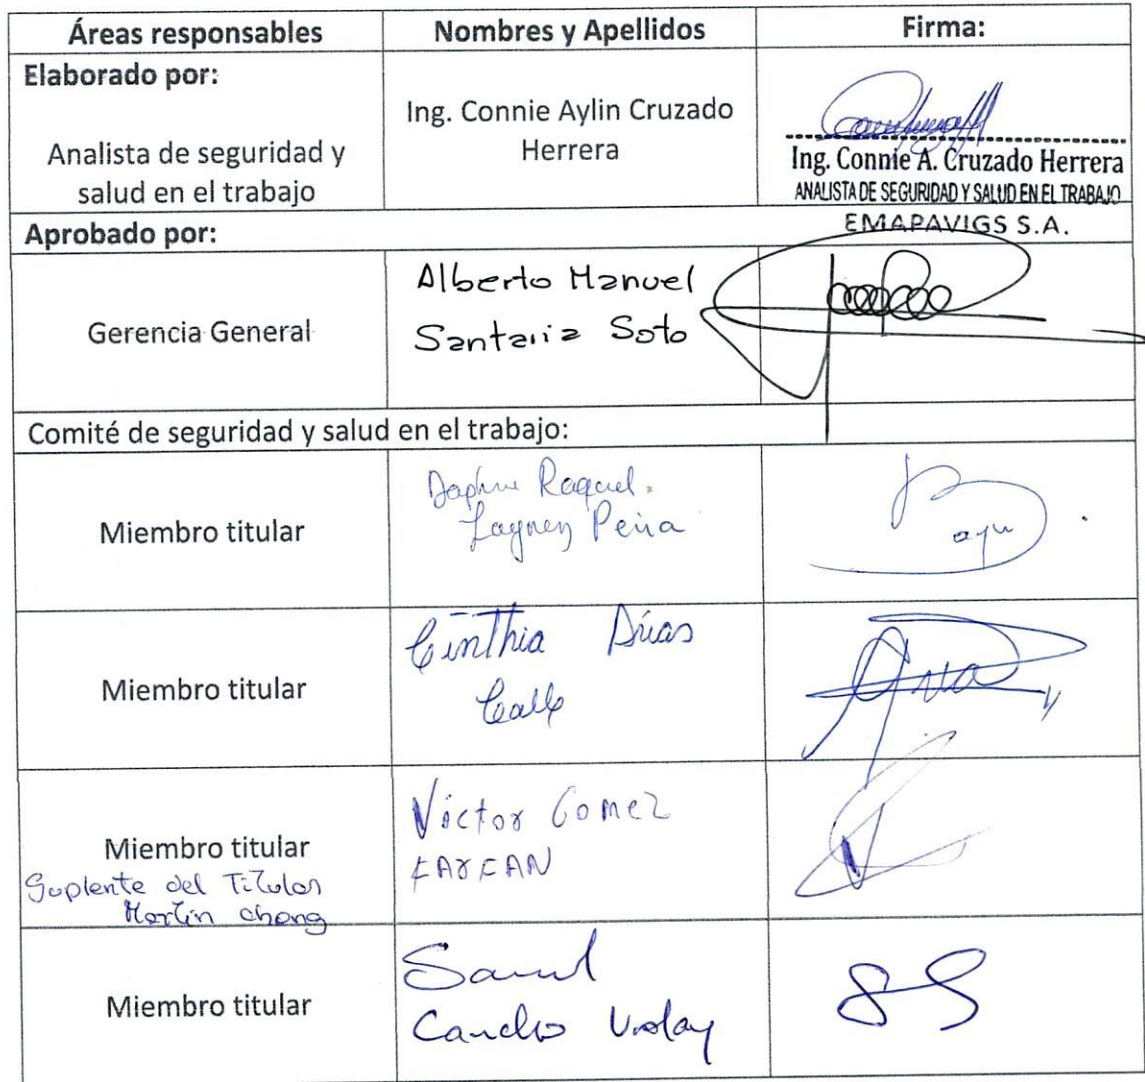 Áreas responsables
Nombres y Apellidos
Firma:
Elaborado por:
Analista de seguridad y
salud en el trabajo
Ing. Connie Aylin Cruzado
Herrera
Ing. Connie A. Cruzado Herrera
ANALISTA DE SEGURIDAD Y SALUD EN EL TRABAJO
EMAPAVIGS S.A.
Aprobado por:
Gerencia General
Alberto Manuel
Soto
Comité de seguridad y salud en el trabajo:
Miembro titular
Raquel
Miembro titular
Cinthia Arias
Miembro titular
Suplente del Titular
Martín chang
Víctor Gomez
FARFAN
Miembro titular
Cancho